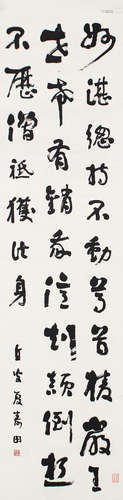 妙湛總持不動尊首楞嚴王
世希有銷我億劫顛倒想
不歷僧祇獲法身
午詒夏壽田